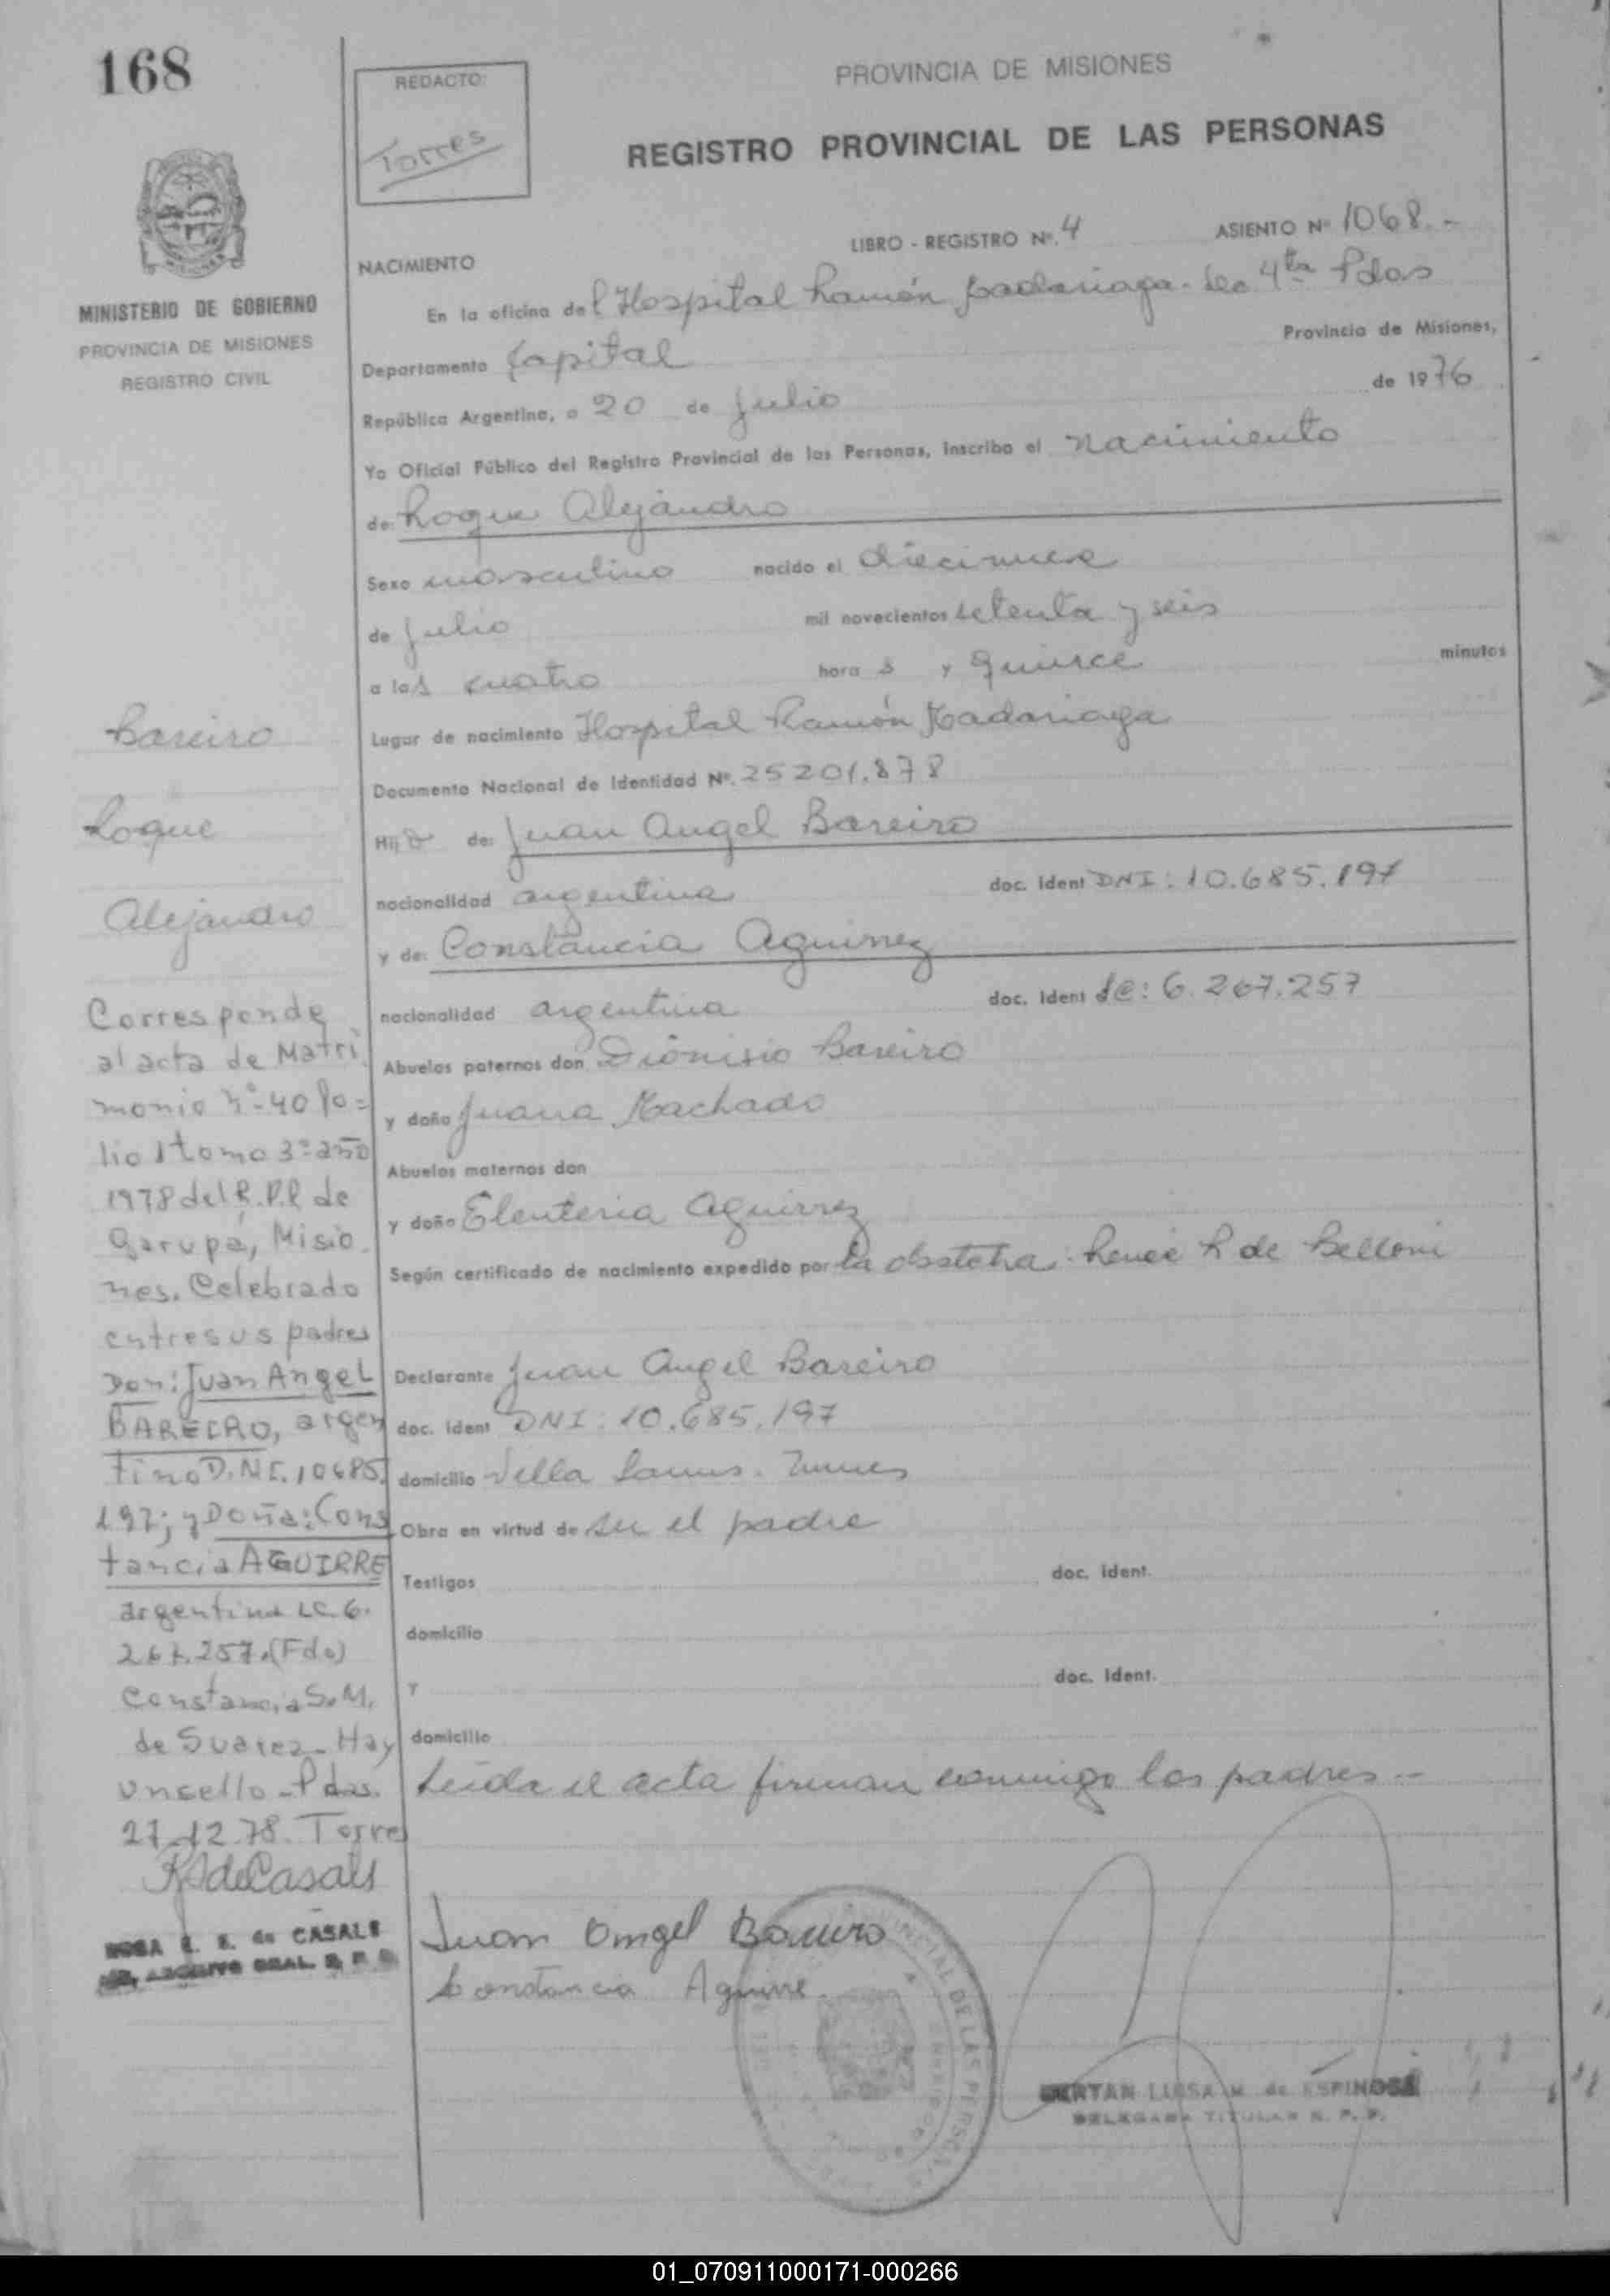 168
REDACTO:
Torres
PROVINCIA DE MISIONES
REGISTRO PROVINCIAL DE LAS PERSONAS
LIBRO - REGISTRO Nº. 4 ASIENTO Nº 1068.-
MINISTERIO DE GOBIERNO
PROVINCIA DE MISIONES
REGISTRO CIVIL
NACIMIENTO
En la oficina del Hospital Ramón Madariaga - Sec 4ta Pdas
Departamento Capital Provincia de Misiones,
República Argentina, a 20 de Julio de 1976
Yo Oficial Público del Registro Provincial de las Personas, inscribo el Nacimiento
de: Roque Alejandro
Sexo masculino nacido el diecinueve
de Julio mil novecientos setenta y seis
a las cuatro hora s y quince minutos
Lugar de nacimiento Hospital Ramón Madariaga
Documento Nacional de Identidad Nº. 25201.878
Hijo de: Juan Angel Bareiro
nacionalidad argentina doc. ident DNI: 10.685.197
y de: Constancia Aguirrez
nacionalidad argentina doc. ident LC: 6.267.257
Abuelos paternos don Dionisio Bareiro
y doña Juana Machado
Abuelos maternos don
y doña Eleuteria Aguirrez
Según certificado de nacimiento expedido por la obstetra: Reneé R de Belloni
Declarante Juan Angel Bareiro
doc. ident DNI: 10.685.197
domicilio Villa Lanus.
Obra en virtud de ser el padre
Testigos doc. ident.
domicilio
Y doc. ident.
domicilio
Leída el acta firman conmigo los padres.-
Juan Angel Bareiro
Constancia Aguirre
Bareiro
Roque
Alejandro
Corresponde
al acta de Matri
monio nº-40 fo=
lio 1 tomo 3º año
1978 del R.P.P. de
Garupá, Misio
nes. Celebrado
entre sus padres
Don: Juan Angel
BAREIRO, argen
tino D.N.I. 10685.
197; y Doña: Cons
tancia AGUIRRE
argentina LC. 6.
267.257.(Fdo)
Constancia S.M.
de Suarez - Hay
un sello - Pdas.
27-12-78. Torres
R S de Casals
ROSA E. S. de CASALS
ARCHIVO GRAL. R. P. P.
LUISA M. de ESPINOSA
DELEGADA TITULAR R. P. P.
01_070911000171-000266